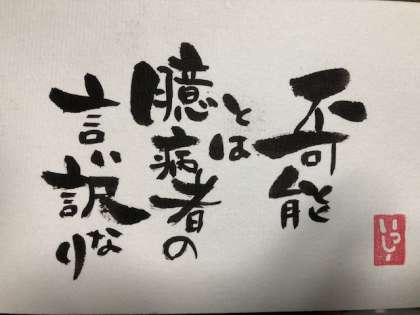 不可能
とは
臆病者の
言い訳なり
いっしー